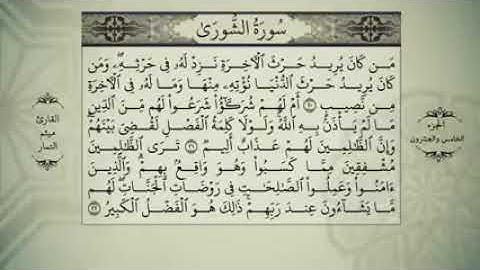 سُورَةُ الشُّورَىٰ
مَن كَانَ يُرِيدُ حَرْثَ ٱلْـَٔاخِرَةِ نَزِدْ لَهُۥ فِى حَرْثِهِۦ ۖ وَمَن
كَانَ يُرِيدُ حَرْثَ ٱلدُّنْيَا نُؤْتِهِۦ مِنْهَا وَمَا لَهُۥ فِى ٱلْـَٔاخِرَةِ
مِن نَّصِيبٍ ۝٢٠ أَمْ لَهُمْ شُرَكَٰٓؤُا۟ شَرَعُوا۟ لَهُم مِّنَ ٱلدِّينِ
مَا لَمْ يَأْذَنۢ بِهِ ٱللَّهُ ۚ وَلَوْلَا كَلِمَةُ ٱلْفَصْلِ لَقُضِىَ بَيْنَهُمْ ۗ
وَإِنَّ ٱلظَّٰلِمِينَ لَهُمْ عَذَابٌ أَلِيمٌ ۝٢١ تَرَى ٱلظَّٰلِمِينَ
مُشْفِقِينَ مِمَّا كَسَبُوا۟ وَهُوَ وَاقِعٌۢ بِهِمْ ۗ وَٱلَّذِينَ
ءَامَنُوا۟ وَعَمِلُوا۟ ٱلصَّٰلِحَٰتِ فِى رَوْضَاتِ ٱلْجَنَّاتِ ۖ لَهُم
مَّا يَشَآءُونَ عِندَ رَبِّهِمْ ۚ ذَٰلِكَ هُوَ ٱلْفَضْلُ ٱلْكَبِيرُ ۝٢٢
الجزء
الخامس والعشرون
القارئ
ميثم
التمار